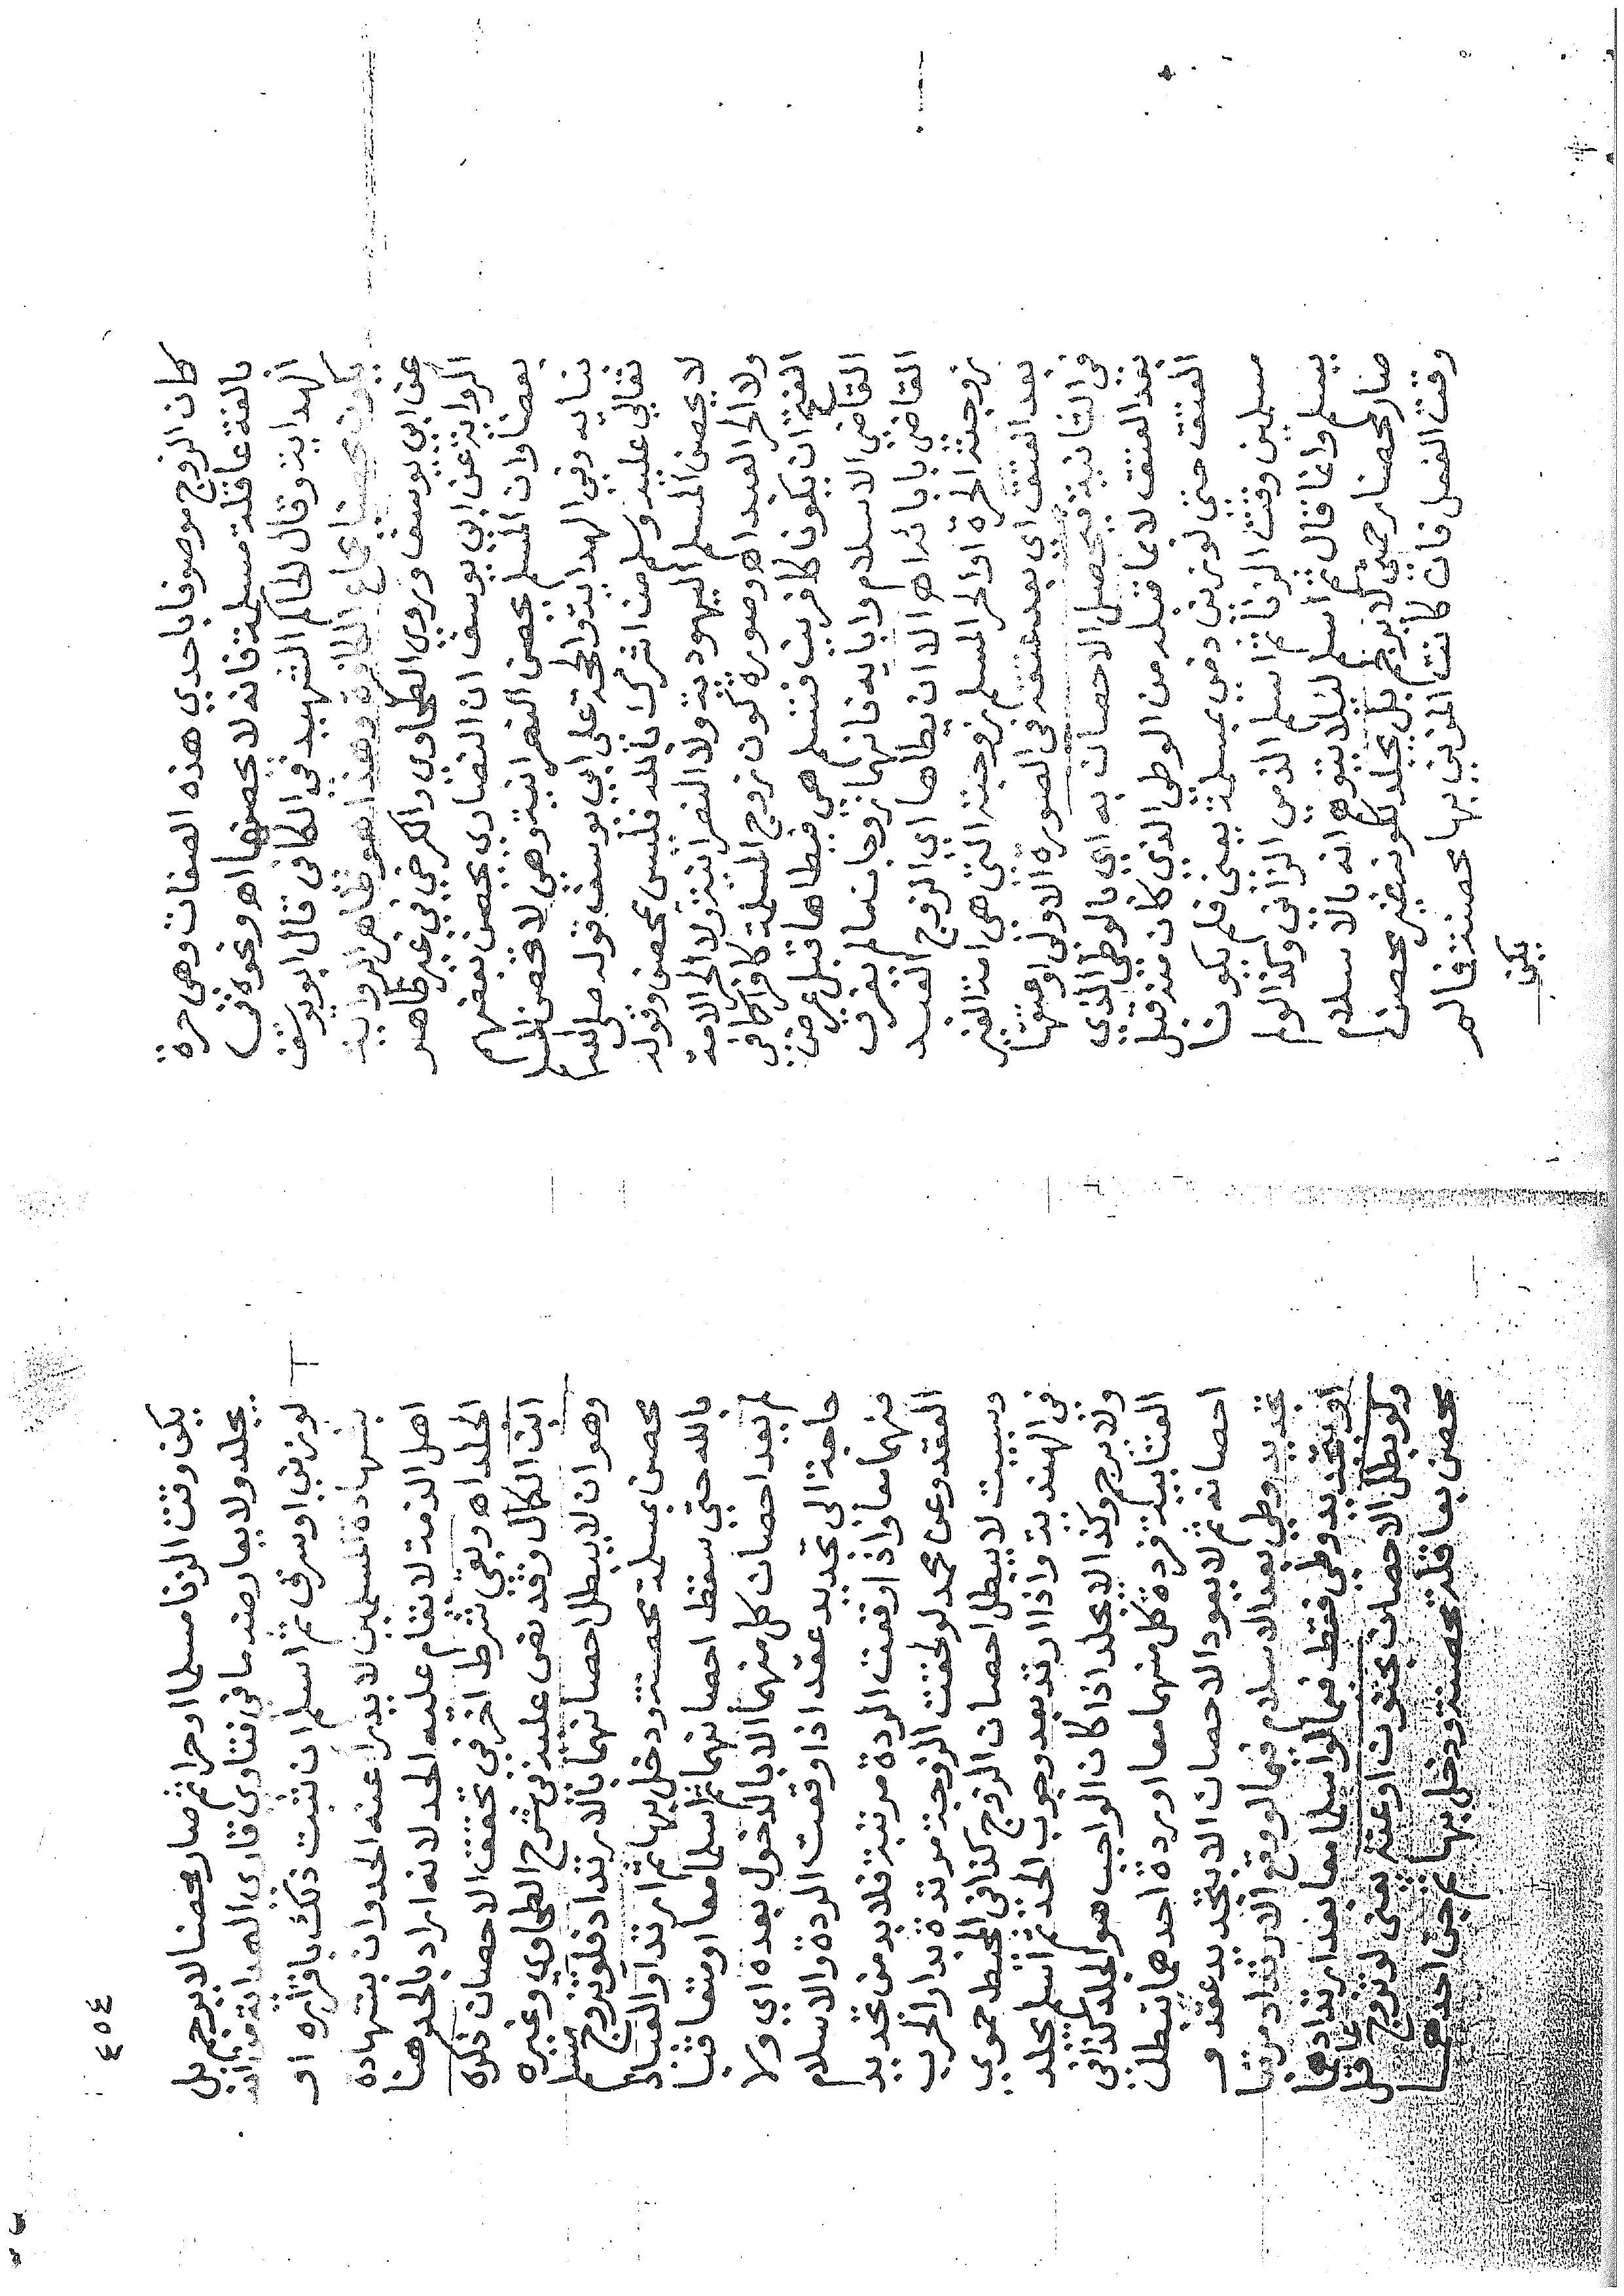 كان الزوج موصوفا باحدي هذه الصفات وهي حرة
بالغة عاقلة مسلمة فانه لا يحصنها اه ونحوه في
الهداية وقال الحاكم الشهيد في الكافي قال ابو يوسف
يكون محصنا بجماع الكافرة وهذا هو ظاهر الرواية
عن ابي يوسف وروي الطحاوي والكرخي في غير ظاهر
الرواية عن ابي يوسف ان النصاري يحصن بعضهم
بعضا وان المسلم يحصن النصرانية وهي لا تحصن المسلم
نهايه وفي الهداية والحجة على ابي يوسف قوله صلى الله
تعالي عليه وسلم من اشرك بالله فليس بمحصن وقوله
لا يحصن المسلم اليهودية ولا النصرانية ولا الحر الامة
ولا الحرة العبد اه وصورة كون زوج المسلمة كافرا كما في
الفتح ان يكونا كافرين فتسلم هي فيطاها قبل عرض
القاضي الاسلام واباءه فانهما زوجان ما لم يفرق
القاضي باباءه اه الا ان يطاها اي الزوج العبد
زوجته الحرة او الحر المسلم زوجته التي هي امة الغير
بعد العتق اي بعد عتقه في الصورة الاولى او عتقها
في الثانية فيحصل الاحصان به اي بالوطئ الذي
بعد العتق لا بما قبله من الوطى الذي كان منه قبل
العتق حتى لو زنى ذمي بمسلمة يعنى فلم يكونا
مسلمين وقت الزنا ثم اسلم الذمي الزاني وكذا لو لم
يسلم وانما قال ثم اسلم لئلا يتوهم انه بالاسلام
صار محصنا رجم حتى لا يرجم بل يجلد لكونه غير محصن
وقت الفعل فان كانت المزني بها محصنة فالم
يكن
٤٥٤
يكن وقت الزنا مسلما او حرا ثم صار محصنا لا يرجم بل
يجلد ولا يعارضه ما في فتاوى قارئ الهداية من انه
لو زنى او سرق ثم اسلم ان ثبت ذلك باقراره او
بشهادة المسلمين لا يدرا عنه الحد وان بشهادة
اهل الذمة لا يقام عليه الحد لانه اراد بالحد هنا
الجلد اه وبقي شرط اخر في تحقق الاحصان ذكره
ابن الكمال وقد نص عليه في شرح الطحاوي وغيره
وهو ان لا يبطل احصانهما بالارتداد فلو تزوج مسلم
محصن بمسلمة محصنة ودخل بها ثم ارتدا والعياذ
بالله حتى سقط احصانهما ثم اسلما معا او متعاقبا
لم يعد احصان كل منهما الا بالدخول بعده اي ولا
حاجة الى تجديد عقد اذا وقعت الردة والاسلام
منهما معا واذا وقعت الردة مرتبة فلا بد من تجديد
العقد وعن محمد لو لحقت الزوجة مرتدة بدار الحرب
وسبيت لا يبطل احصان الزوج كذا في المحيط حموي
في الهندية واذا ارتد بعد وجوب الحد ثم اسلم يجلد
ولا يرجم وكذا لا يجلد اذا كان الواجب هو الجلد كذا في
العتابية فردة كل منهما معا او ردة احدهما تبطل
احصانه ثم لا يعود الاحصان الا بتجديد عقد و
تجديد وطئ بعد الاسلام فيما لو وقع الارتداد مرتبا
او بتجديد وطئ فقط فيما لو اسلما معا بعد ارتدادهما
ولو بطل الاحصان بجنون او عته يعنى لو تزوج عاقل
محصن بعاقلة محصنة ودخل بها ثم جن احدهما